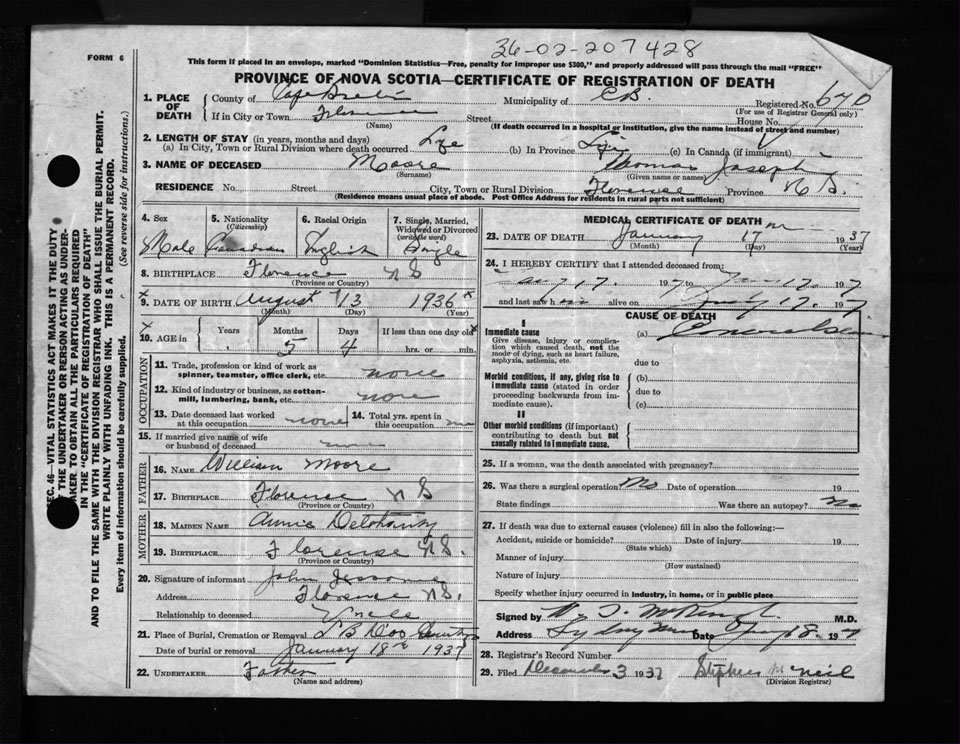 36-02-207428
FORM 6
This form if placed in an envelope, marked "Dominion Statistics—Free, penalty for improper use $300," and properly addressed will pass through the mail "FREE"
PROVINCE OF NOVA SCOTIA—CERTIFICATE OF REGISTRATION OF DEATH
1. PLACE OF DEATH County of Cape Breton Municipality of C.B. Registered No. 670
(For use of Registrar General only)
If in City or Town Florence Street House No.
(Name) (If death occurred in a hospital or institution, give the name instead of street and number)
2. LENGTH OF STAY (in years, months and days)
(a) In City, Town or Rural Division where death occurred Life (b) In Province Life (c) In Canada (if immigrant)
3. NAME OF DECEASED Moore Thomas Joseph
(Surname) (Given name or names)
RESIDENCE No. Street City, Town or Rural Division Florence Province N S.
(Residence means usual place of abode. Post Office Address for residents in rural parts not sufficient)
4. Sex 5. Nationality (Citizenship) 6. Racial Origin 7. Single, Married, Widowed or Divorced (write the word)
Male Canadian English Single
8. BIRTHPLACE Florence N S
(Province or Country)
9. DATE OF BIRTH August 13 1936
(Month) (Day) (Year)
10. AGE in Years Months Days If less than one day old
5 4 hrs. or min.
OCCUPATION
11. Trade, profession or kind of work as spinner, teamster, office clerk, etc. none
12. Kind of industry or business, as cotton-mill, lumbering, bank, etc. none
13. Date deceased last worked at this occupation none 14. Total yrs. spent in this occupation
15. If married give name of wife or husband of deceased none
FATHER
16. NAME William Moore
17. BIRTHPLACE Florence N S
(Province or Country)
MOTHER
18. MAIDEN NAME Annie
19. BIRTHPLACE Florence N S.
(Province or Country)
20. Signature of informant John
Address Florence N S.
Relationship to deceased Uncle
21. Place of Burial, Cremation or Removal
Date of burial or removal January 18th 1937
22. UNDERTAKER Father
(Name and address)
MEDICAL CERTIFICATE OF DEATH
23. DATE OF DEATH January 17th 1937
(Month) (Day) (Year)
24. I HEREBY CERTIFY that I attended deceased from:
17 197 to 17 197
and last saw him alive on 17 197
CAUSE OF DEATH
I
Immediate cause (a)
Give disease, injury or complication which caused death, not the mode of dying, such as heart failure, asphyxia, asthenia, etc.
due to
Morbid conditions, if any, giving rise to immediate cause (stated in order proceeding backwards from immediate cause). (b)
due to
(c)
II
Other morbid conditions (if important) contributing to death but not causally related to immediate cause.
25. If a woman, was the death associated with pregnancy?
26. Was there a surgical operation? No Date of operation 19
State findings Was there an autopsy? No
27. If death was due to external causes (violence) fill in also the following:—
Accident, suicide or homicide? Date of injury 19
(State which)
Manner of injury
(How sustained)
Nature of injury
Specify whether injury occurred in industry, in home, or in public place
Signed by M.D.
Address Sydney Mines Date
28. Registrar's Record Number
29. Filed December 3 1937 Stephen Mc Neil
(Division Registrar)
SEC. 46—VITAL STATISTICS ACT MAKES IT THE DUTY
OF THE UNDERTAKER OR PERSON ACTING AS UNDERTAKER TO OBTAIN ALL THE PARTICULARS REQUIRED
IN THE "CERTIFICATE OF REGISTRATION OF DEATH"
AND TO FILE THE SAME WITH THE DIVISION REGISTRAR WHO SHALL ISSUE THE BURIAL PERMIT.
WRITE PLAINLY WITH UNFADING INK. THIS IS A PERMANENT RECORD.
Every item of information should be carefully supplied. (See reverse side for instructions.)